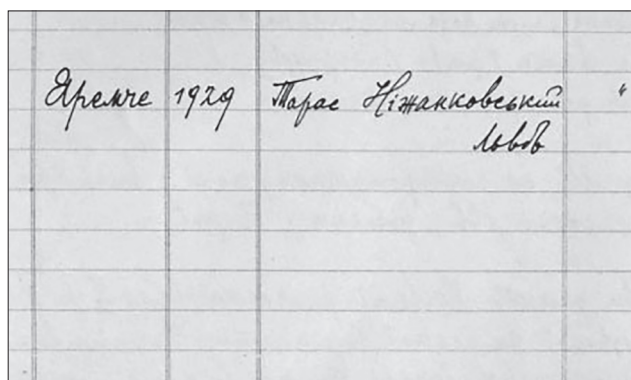 Яремче 1929 Тарас Ніжанковський "
Львов